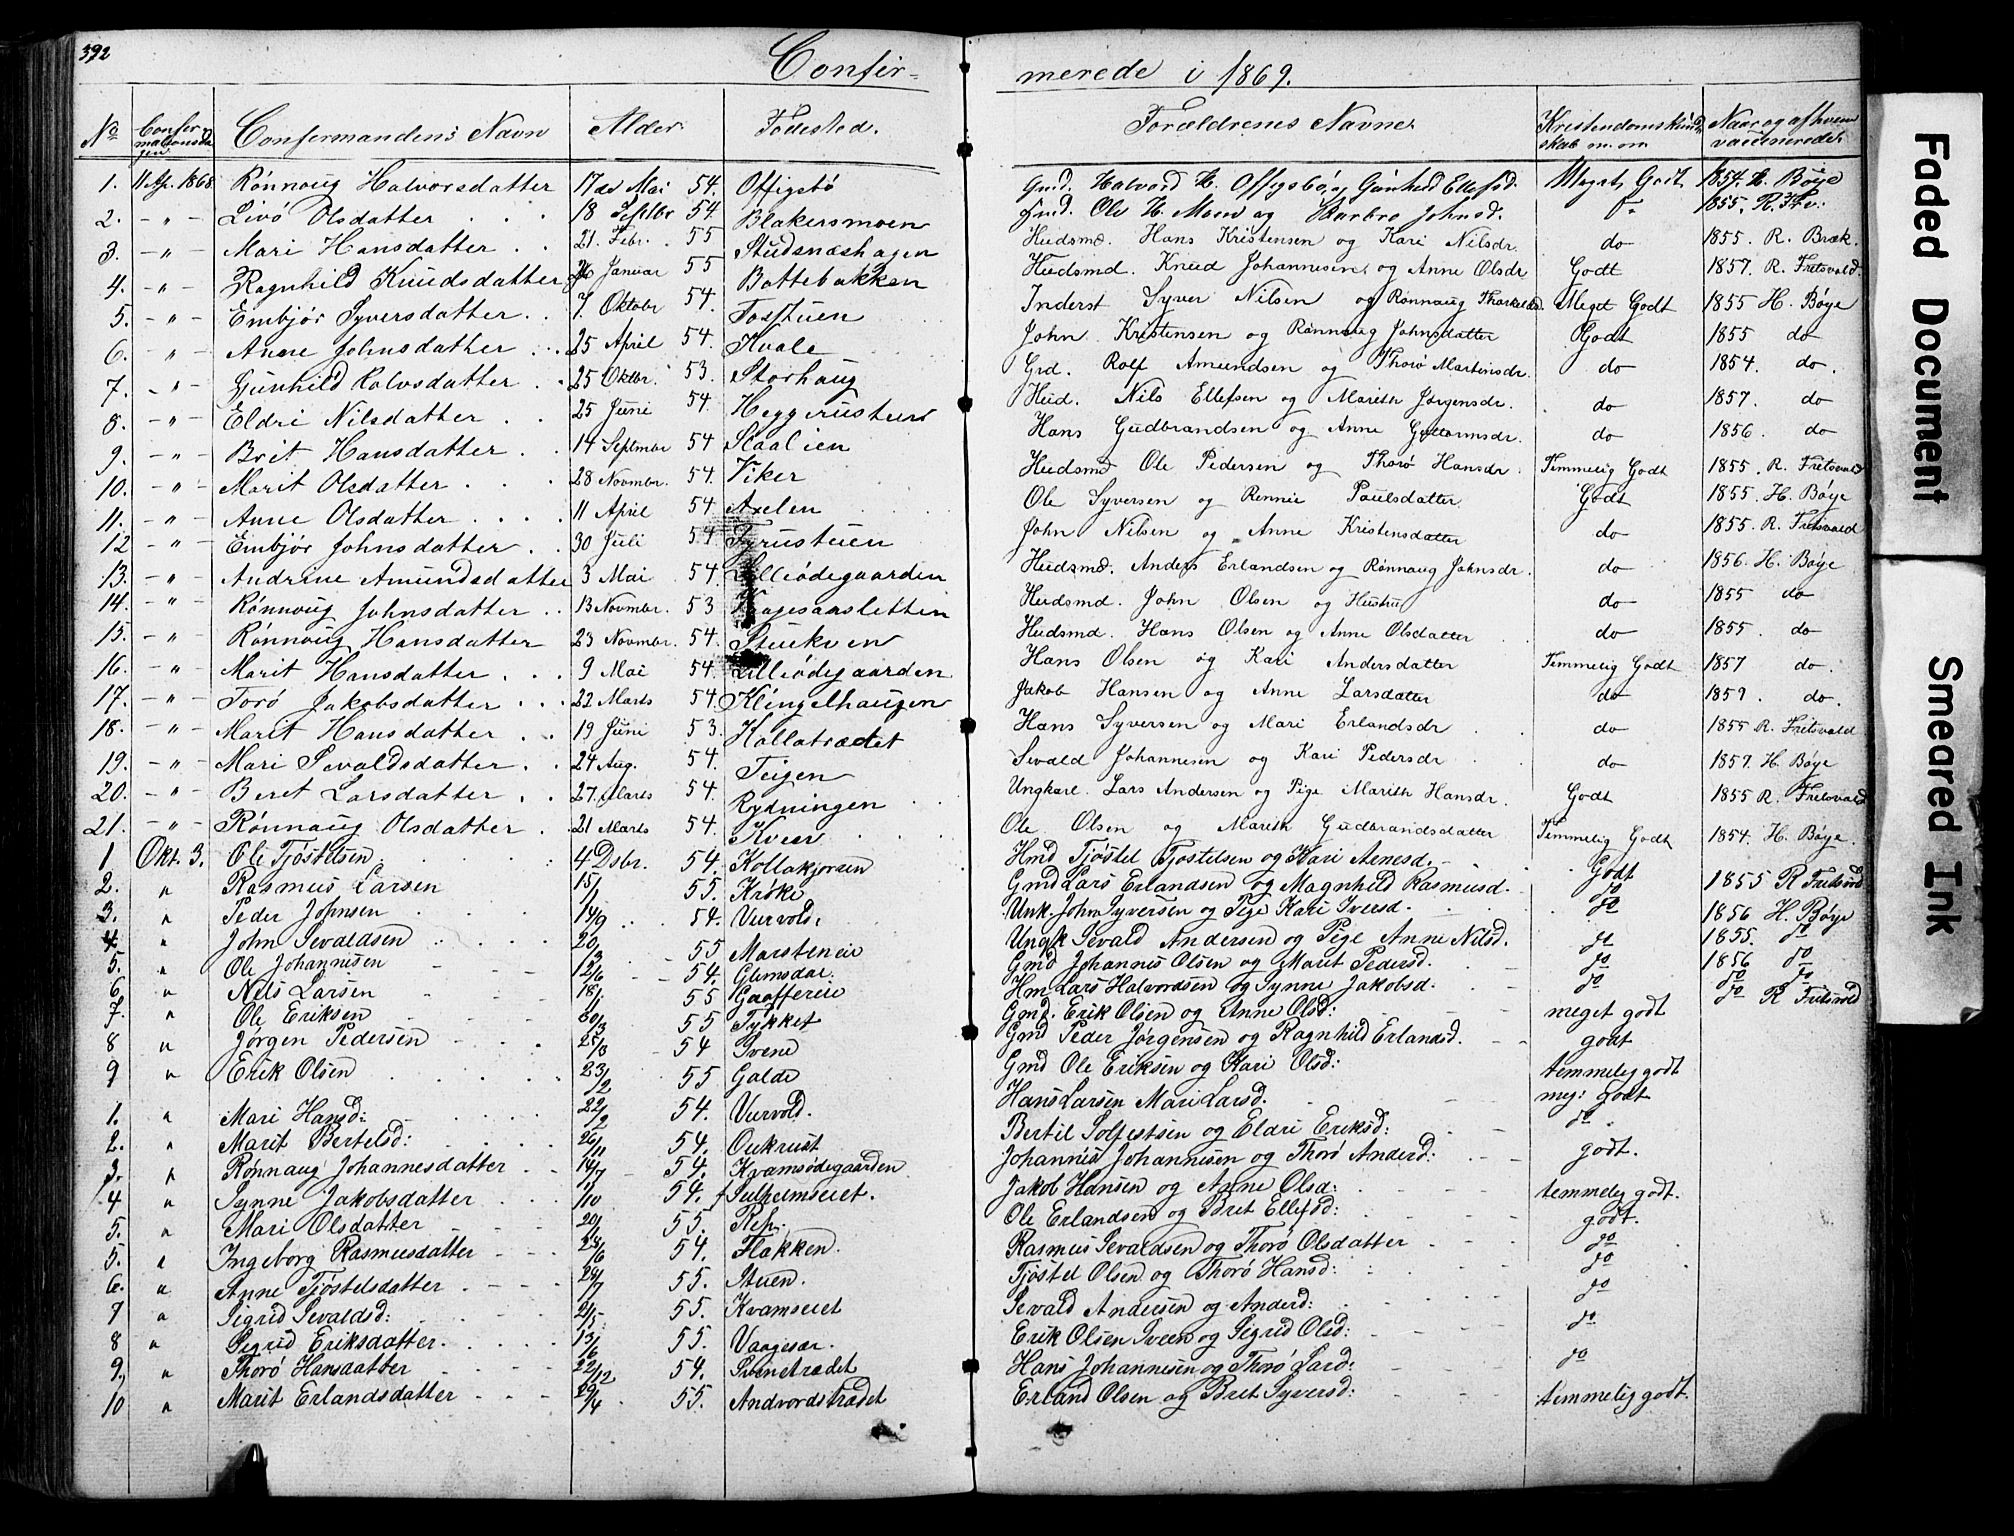 392
Confir- merede i 1869.
No Confirmationsdagen Confermandens Navn Alder Fødested. Forældrenes Navne Kristendomskundskab m. m Naar og af hvem vaccinerede.
1. 11 Ap. 1868 Rønnaug Halvorsdatter 17de Mai 54. Offigsbø Gmd. Halvord H. Offigsbø og Gunhild Ellefsd. Meget Godt 1854. H. Bøye
2. - " - Livø Olsdatter 18 Septbr 54. Blakersmoen Gmd. Ole H. Moen og Barbro Johnsd. 1855.
3. - " - Mari Hansdatter 21. Febr. 55 Studsnæshagen Husmd. Hans Kristensen og Kari Nilsdr. do 1855. R. Bræk.
4. - " - Ragnhild Knudsdatter 26 Januar 55 Bottebakken Husmd. Knud Johannesen og Anne Olsdr Godt 1857. R. Fretsvold.
5. - " - Embjør Syversdatter 7. Oktobr 54. Fosstuen Inderst Syver Nilsen og Rønnaug Meget Godt 1855 H. Bøye
6. - " - Anne Johnsdatter 25 April 54. Kvale John Kristensen og Rønnaug Johnsdatter Godt 1855 do
7. - " - Gunhild Rolvsdatter 25 Oktbr. 53. Storhaug Grd. Rolf Amundsen og Thorø Martinsdr. do 1854. do.
8. - " - Eldri Nilsdatter 25 Juni 54. Heggerustuen Husd. Nils Ellefsen og Marith Jørgensdr. do 1857. do
9. - " - Brit Hansdatter 14 Septmbr 54 Slaalien Hans Gudbrandsen og Anne Guttormsdr. do 1856. do
10. - " - Marit Olsdatter 28 Novmbr. 54. Viker Husmd Ole Pedersen og Thorø Hansdr. Temmelig Godt 1855. R. Fretsvold
11. - " - Anne Olsdatter 11 April 54 Axelen Ole Syversen og Rennie Paulsdatter Godt 1855. H. Bøye
12 - " - Embjør Johnsdatter 30 Juli 54 Fyrustuen John Nilsen og Anne Kristensdatter do 1855. R. Fretsvold
13. - " - Andrine Amundsdatter 3 Mai 54 Lilleødegaarden Husmd. Anders Erlandsen og Rønnaug Johnsdr. do 1856. H. Bøye
14. - " - Rønnoug Johnsdatter 13 Novmbr. 53 Vaagesaasletten Husmd. John Olsen og Hustru do 1855 do
15. - " - Rønnoug Hansdatter 23 Novmbr. 54. Husmd. Hans Olsen og Anne Olsdatter do 1855. do
16. - " - Marit Hansdatter 9 Mai 54. Lilleødegaarden Hans Olsen og Kari Andersdatter Temmelig Godt 1857 do.
17. - " - Torø Jakobsdatter 22 Marts 54. Klingelhaugen Jakob Hansen og Anne Larsdatter do 1859. do.
18. - " - Marit Hansdatter 19 Juni 53. Kollatrædet Hans Syversen og Mari Erlandsdr do 1855 R. Fretsvold
19. - " - Mari Sevaldsdatter 24 Aug. 54. Teigen Sevald Johannesen og Kari Pedersdr do 1857. H. Bøye
20. - " - Beret Larsdatter 27. Marts 54. Rydningen Ungkarl. Lars Andersen og Pige Marith Hansdr. Godt 1855 R. Fretsvold
21. - " - Rønnaug Olsdatter 21 Marts 54. Kveen Ole Olsen og Marith Gudbrandsdatter Temmelig Godt 1854. H. Bøye.
1 Okt. 3. Ole Tjøstelsen 4 Dsbr. 54. Kollakjønnen Hmd Tjøstel Tjøstelsen og Kari Arnesd. Godt
2. " Rasmus Larsen 15/1 55. Krøke Gmd Lars Erlandsen og Magnhild Rasmusd. do 1855 R Fretsvold
3. " Peder Johnsen 14/9 54. Vurvold. Unk. John Syversen og Pige Kari Iversd. do 1856 H. Bøye
4. " John Sevaldsen 20/3 55 Marsteneie Ungk Sevald Andersen og Pige Anne Nilsd. do 1855. do
5. " Ole Johannisen 12/6 54. Glemsdal. Gmd Johannis Olsen og Marit Pedersd. do 1856 do
6. " Nils Larsen 18/1 55 Gaaffereie Hm Lars Halvordsen og Synne Jakobsd. do do do
7. " Ole Eriksen 30/3 55 Tykket Gmd. Erik Olsen og Anne Olsd: meget godt do R Fretsvold
8 " Jørgen Pedersen 25/3 54 Svene Gmd Peder Jørgensen og Ragnhild Erlandsd. godt
9 " Erik Olsen 23/2 55 Galde Gmd Ole Eriksen og Kari Olsd: temmelig godt
1. " Mari Hansd: 22/2 54. Vurvold. Hans Larsen Mari Larsd. meg: godt
2. " Marit Bertelsd: 26/11 54. Oukrust Bertil Solfestsen og Eldri Eriksd: do
3. " Rønnaug Johannesdatter 14/7 54. Kvamsødegaarden Johannis Johannisen og Thorø Andersd: godt.
4 " Synne Jakobsdatter 1/10 54. Sulheimseiet. Jakob Hansen og Anne Olsd: temmelig godt.
5. " Mari Olsdatter 20/1 55. Rep. Ole Erlandsen og Bret Ellefsd: godt.
5. " Ingeborg Rasmusdatter 24/6 54. Flakken. Rasmus Sevaldsen og Thorø Olsdatter do
6. " Anne Tjøstelsdatter 29/7 55. Stuen. Tjøstel Olsen og Thorø Hansd: do
7 " Sigrid Sevaldsd: 2/5 55. Kvamseiet Sevald Andersen og Andersd: do
8 " Sigrid Eriksdatter 13/6 55. Vaagesar. Erik Olsen Sveen og Sigrid Olsd: do
9. " Thorø Hansdatter 22/12 54. Svenetrædet Hans Johannisen og Thorø Larsd: do
10 " Marit Erlandsdatter 29/4 55. Andvordstrædet Erland Olsen og Bret Syversd: temmelig godt.
Faded Document
Smeared Ink